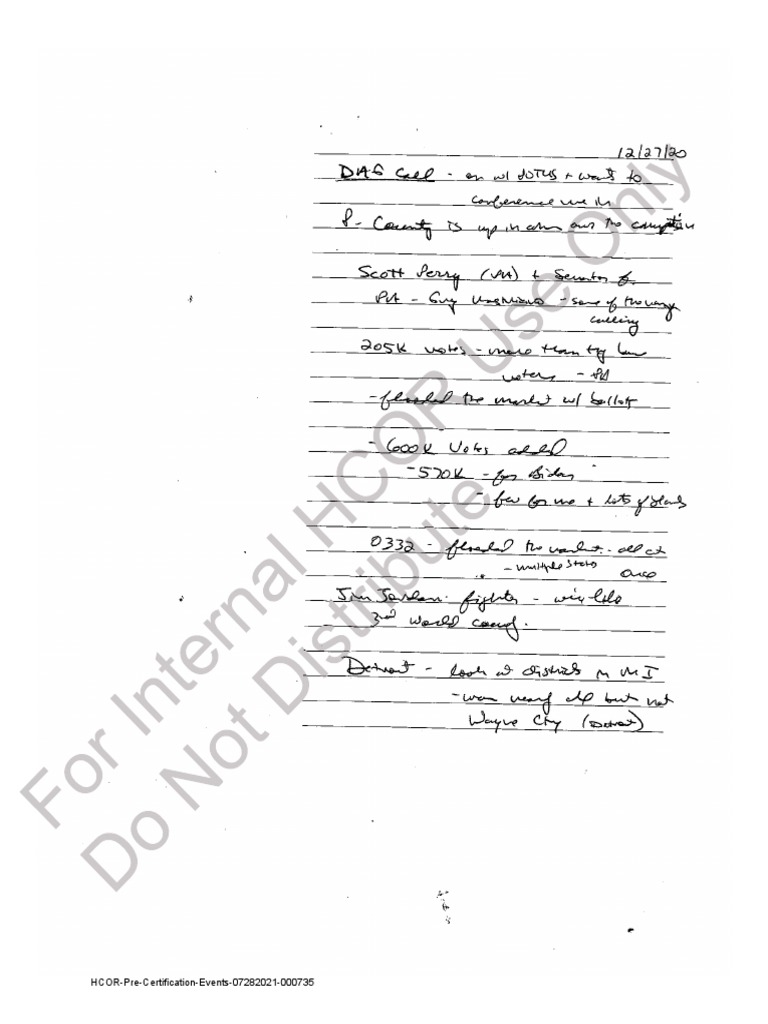 12/27/20
DAG Call - on w/ POTUS + wants to
conference me in
P - Country is up in arms over the corruption
Scott Perry (PA) + Senator fr.
PA - Guy - some of the
calling
205K votes - more than they have
voters - PA
- flooded the market w/ ballots
- 600K Votes added
- 570K - for Biden
- few for me + lots of
0332 - flooded the market - all at
- multiple States
once
Jim Jordan fighter -
3rd World
Detroit - look at districts in MI
- won nearly all but not
Wayne Cty (Detroit)
For Internal HCOR Use Only
Do Not Distribute
HCOR-Pre-Certification-Events-07282021-000735